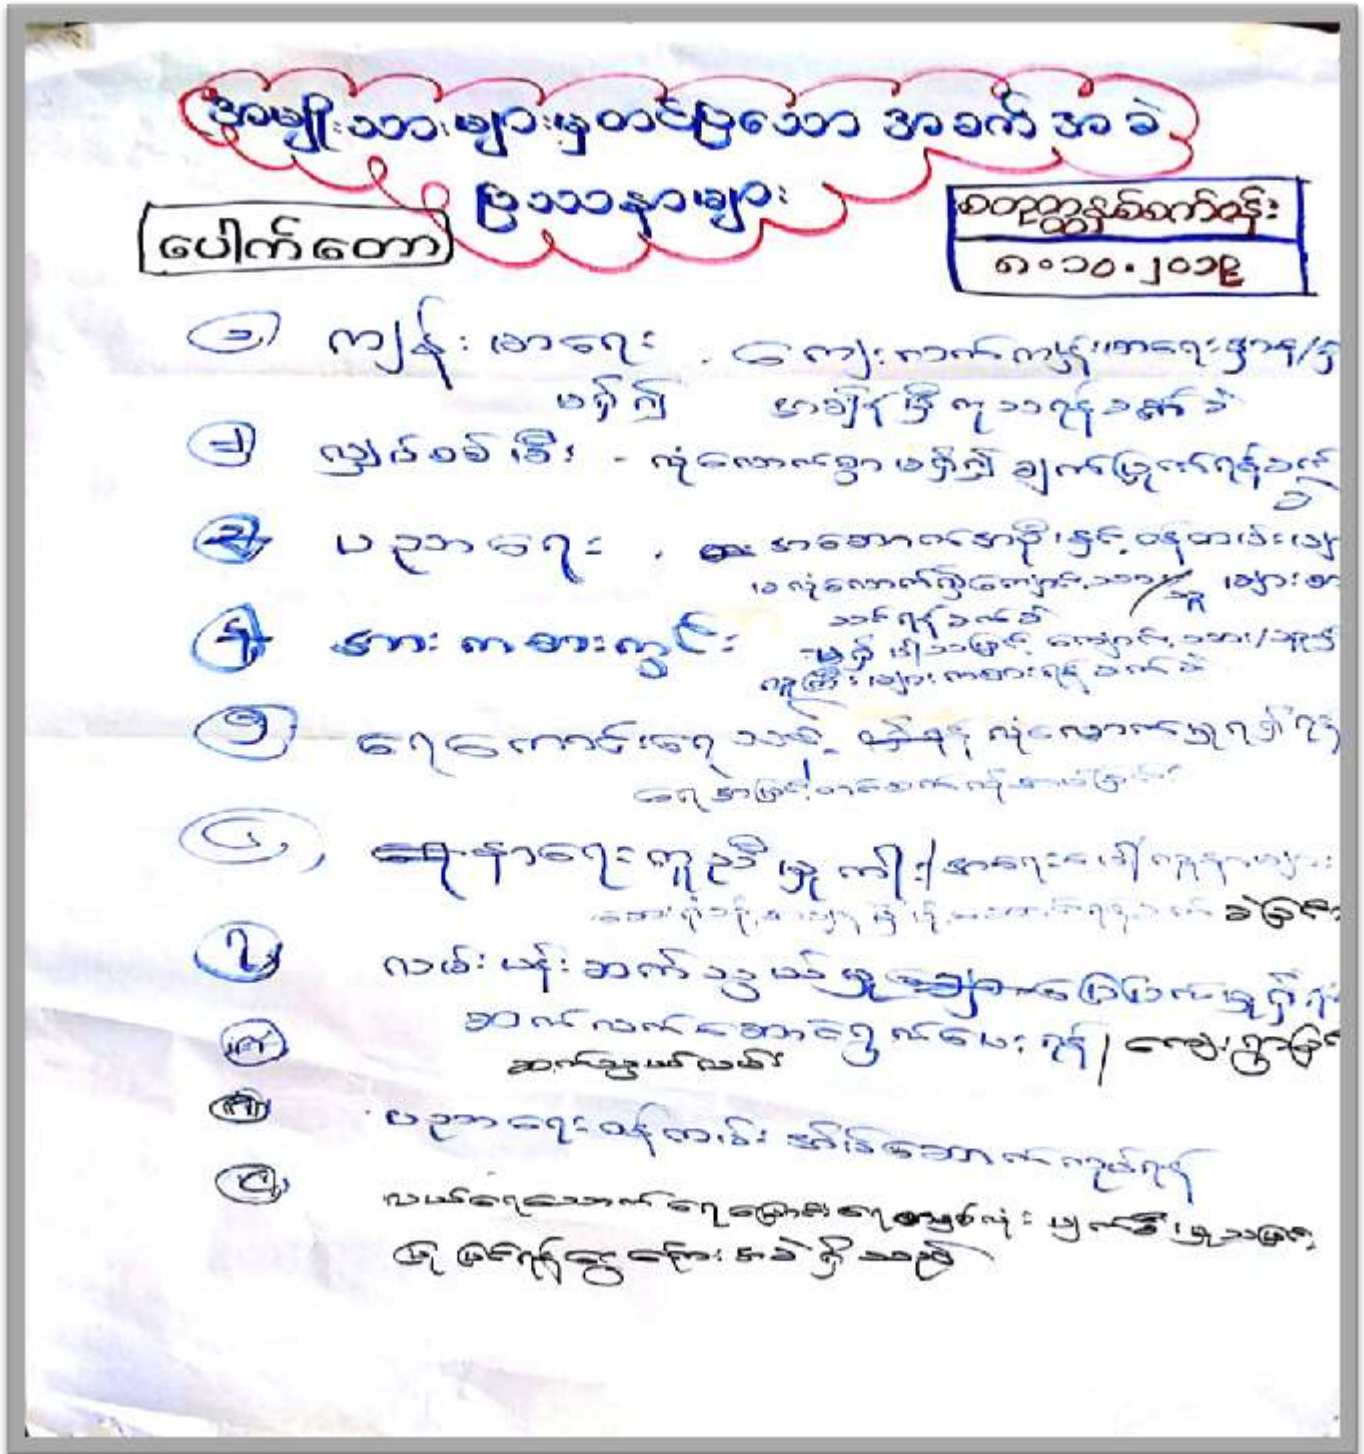 အမျိုးသားများမှတင်ပြသော အခက်အခဲ
ပြဿနာများ
ပေါက်တော
စတုတ္ထနှစ်စက်ဝန်း
၈.၁၀.၂၀၁၉
၁ ကျန်းမာရေး . ကျေးလက်ကျန်းမာရေးဌာန/မှ
မရှိ၍ အချိန်မှီ ကုသရန်ခက်ခဲ
၂ လျှပ်စစ်မီး - လုံလောက်စွာ မရှိ၍ ချက်ပြုတ်ရန်ခက်
ခဲ
၃ ပညာရေး . အဆောက်အဦးနှင့် ဝန်ထမ်းမျာ
မလုံလောက်၍ကျောင်းသား/သူ များစာ
သင်ရန်ခက်ခဲ
၄ အားကစားကွင်း -မရှိပါသဖြင့် ကျောင်းသား/သူ
လူကြီးများကစားရန်ခက်ခဲ
၅ ရေကောင်းရေသန့် လုံလောက်မှုရရှိရန်
၆ နာရေးကူညီမှုကား/အရေးပေါ်လူနာများ
ဆေးရုံသို့ ခဲခြင်း
၇ လမ်းပန်းဆက်သွယ်မှု ပြေပြစ်မှုရှိရန်
ဆက်လက်ဆောင်ရွက်ပေးရန်/ ကျေးရွာခြင်
ဆက်သွယ်လမ်း
၈ ပညာရေးဝန်ထမ်း အိမ်ဆောက်လုပ်ရန်
၉ လယ်ရေသောက် ရေမြောင်း ပျက်စီးမှုသဖြင့်
ပြုပြင်ရန်ငွေကြေးအခဲရှိသည်